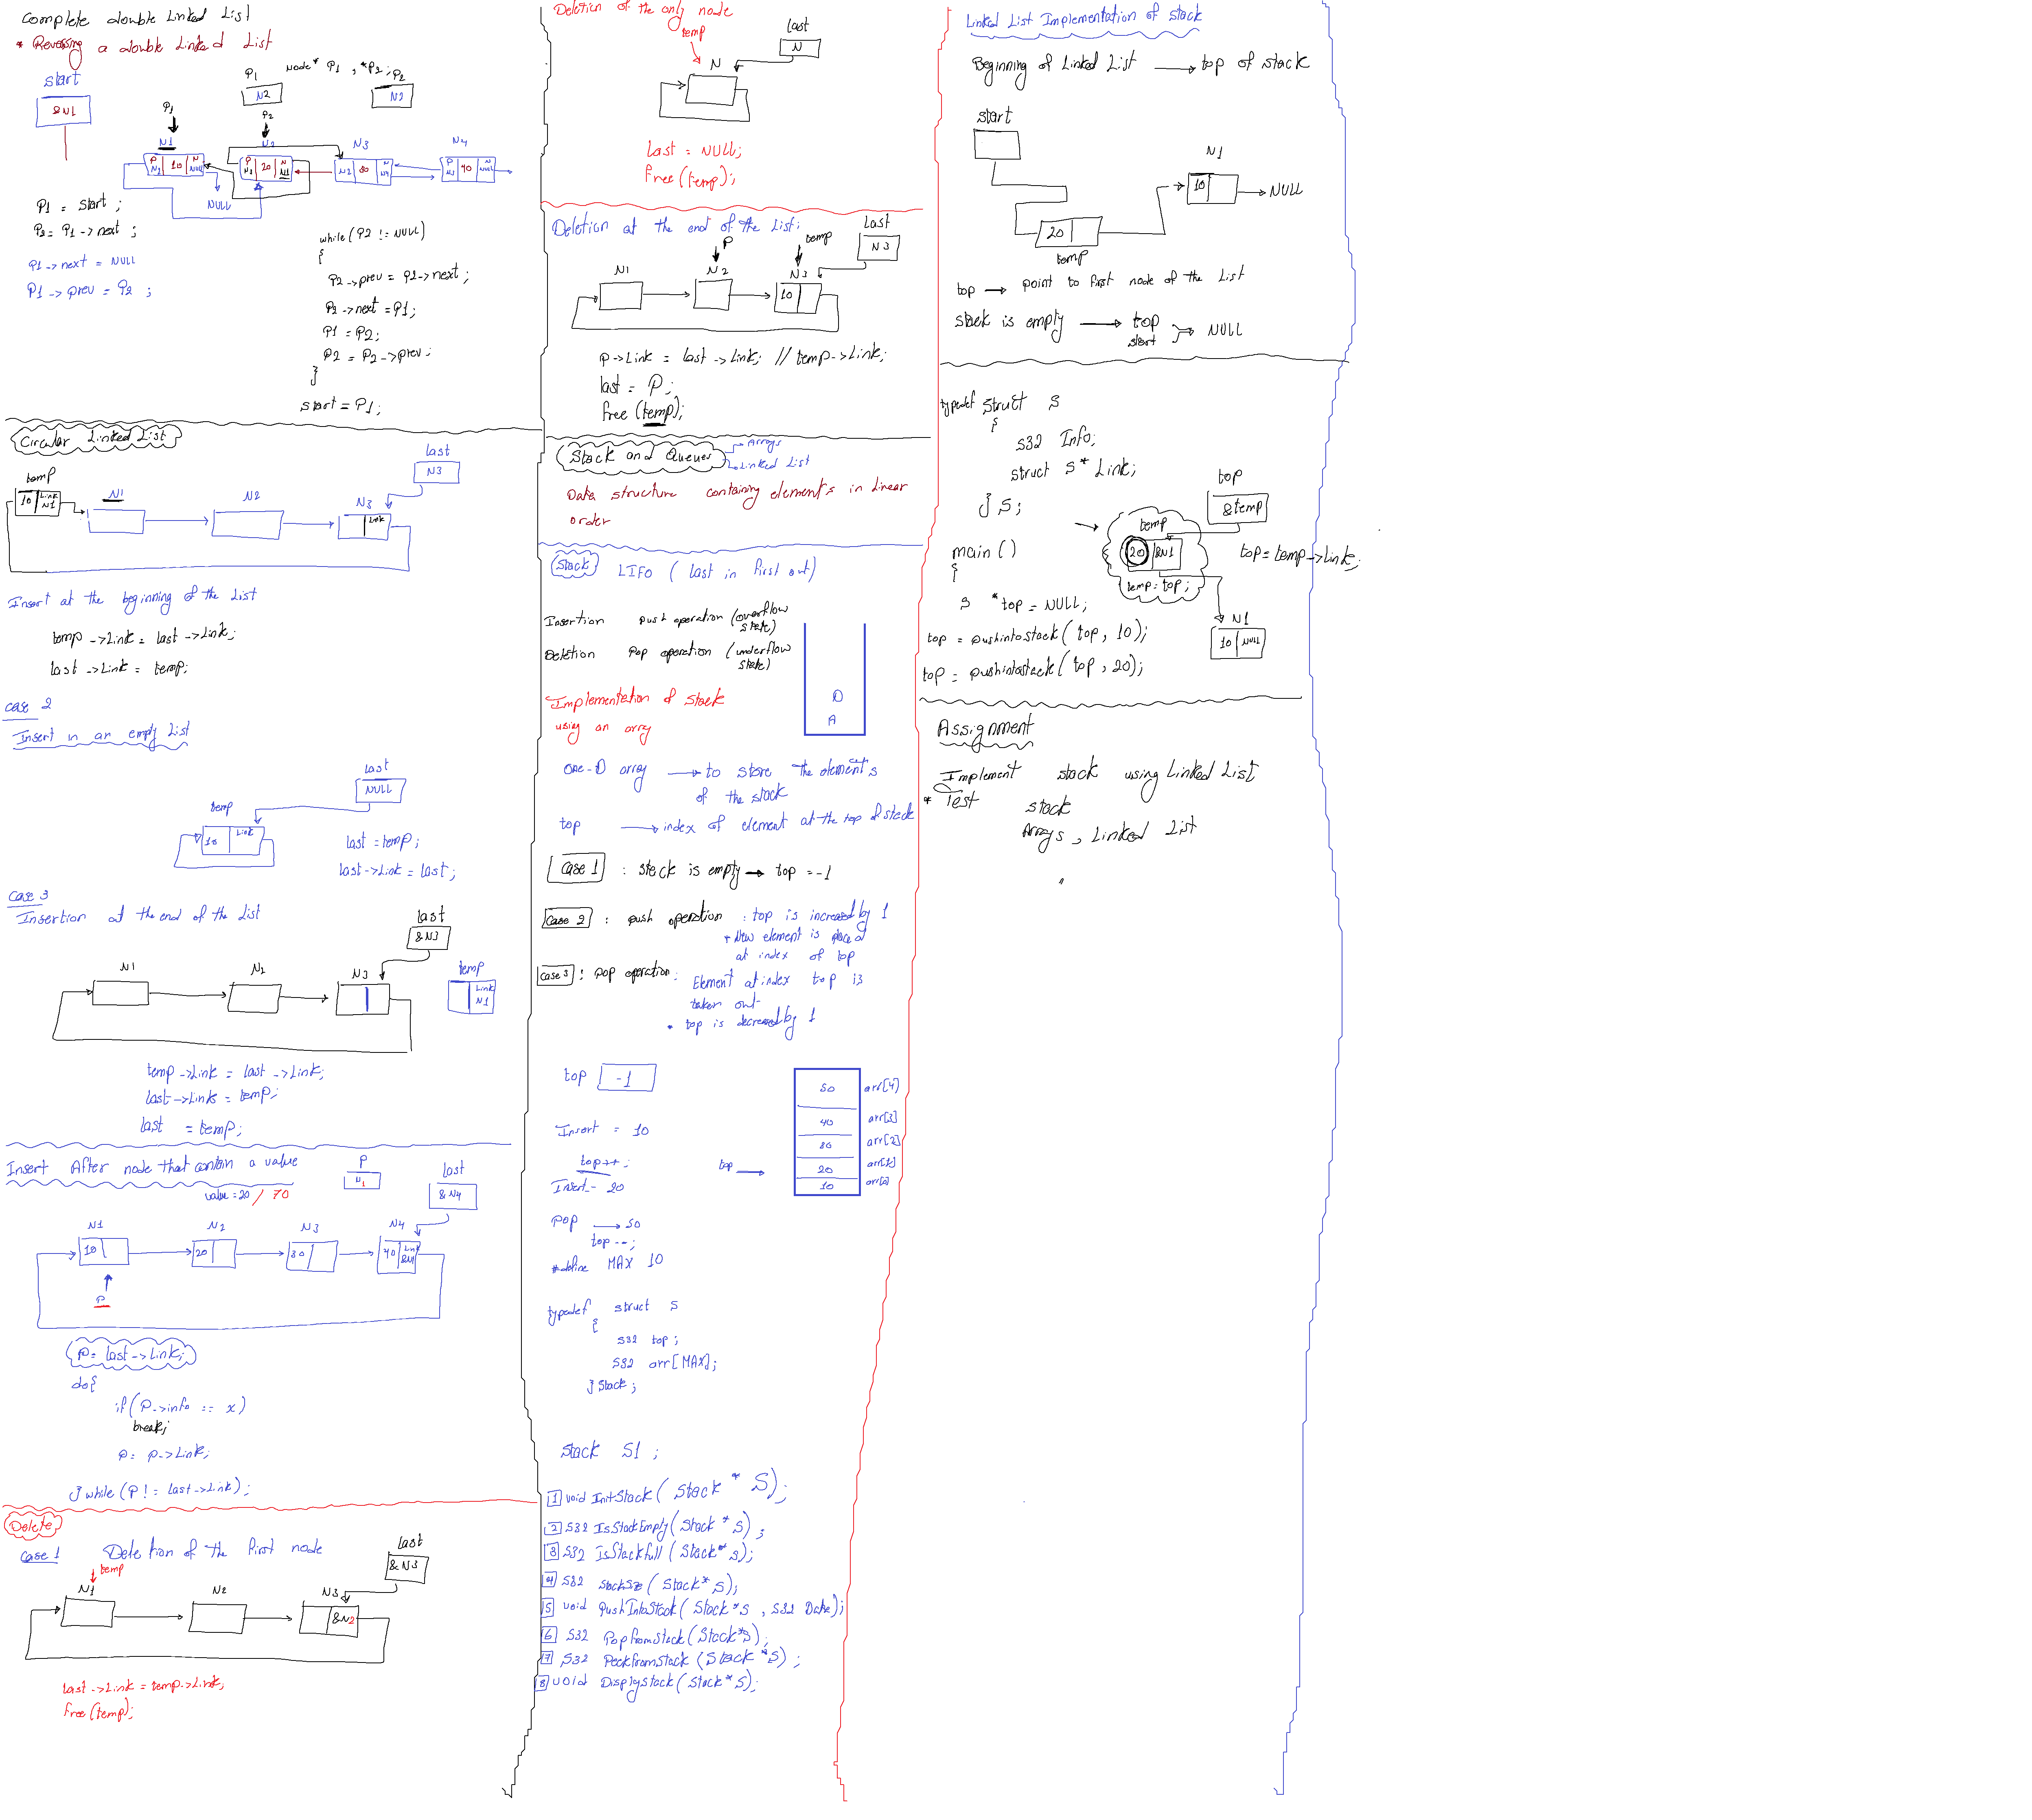 Complete double Linked List
* Reversing a double Linked List
start
&N1
P1
N2
Node* P1, *P2;
P2
N2
P1
P2
N1
N3
N4
P 10 N
N2 NULL
P 20 N
N3 N1
N2 30 N
N4
P 40 N
N3 NULL
NULL
P1 = start;
P2 = P1->next;
P1->next = NULL
P1->prev = P2;
while(P2 != NULL)
{
P2->prev = P2->next;
P2->next = P1;
P1 = P2;
P2 = P2->prev;
}
start = P1;
Circular Linked List
last
N3
temp
10 Link
N1
N1
N2
N3
Link
Insert at the beginning of the List
temp->Link = last->Link;
last->Link = temp;
case 2
Insert in an empty List
last
NULL
temp
10 Link
last = temp;
last->Link = last;
case 3
Insertion at the end of the List
last
&N3
N1
N2
N3
temp
Link
N1
temp->Link = last->Link;
last->Link = temp;
last = temp;
Insert After node that contain a value
value = 20 / 70
P
N1
last
&N4
N1
N2
N3
N4
10
20
30
40 Link
&N1
P
P = last->Link;
do{
if(P->info == x)
break;
P = P->Link;
}while(P != last->Link);
Delete
case 1 Deletion of the first node
temp
last
&N3
N1
N2
N3
&N2
last->Link = temp->Link;
free(temp);
Deletion of the only node
temp
last
N
N
last = NULL;
free(temp);
Deletion at the end of the List:
last
N3
P
temp
N1
N2
N3
10
P->Link = last->Link; // temp->Link;
last = P;
free(temp);
Stack and Queues
Arrays
Linked List
Data structure containing elements in Linear
order
Stack LIFO ( last in first out)
Insertion push operation (overflow
state)
Deletion Pop operation (underflow
state)
D
A
Implementation of stack
using an array
one-D array to store the elements
of the stack
top index of element at the top of stack
Case 1 : stack is empty top = -1
Case 2 : push operation : top is increased by 1
* New element is placed
at index of top
Case 3 : pop operation: Element at index top is
taken out
* top is decreased by 1
top -1
50 arr[4]
40 arr[3]
30 arr[2]
20 arr[1]
10 arr[0]
top
Insert = 10
top++;
Insert = 20
pop 50
top--;
#define MAX 10
typedef struct S
{
S32 top;
S32 arr[MAX];
} Stack;
Stack S1;
1 void InitStack( Stack * S);
2 S32 IsStackEmpty(Stack * S);
3 S32 IsStackFull(Stack* S);
4 S32 StackSize(Stack* S);
5 void PushIntoStack( Stack*S, S32 Data);
6 S32 PopFromStack(Stack*S);
7 S32 PeekFromStack (Stack *S);
8 void DisplayStack(Stack* S);
Linked List Implementation of stack
Beginning of Linked List top of stack
start
N1
10
NULL
20
temp
top point to first node of the List
stack is empty top
start
NULL
typedef struct S
{
S32 Info;
struct S* Link;
} S;
top
&temp
temp
20 &N1
temp = top;
top = temp->Link;
N1
10 NULL
main()
{
S *top = NULL;
top = pushintostack( top, 10);
top = pushintostack( top, 20);
Assignment
Implement stack using Linked List
* Test stack
Arrays, Linked List